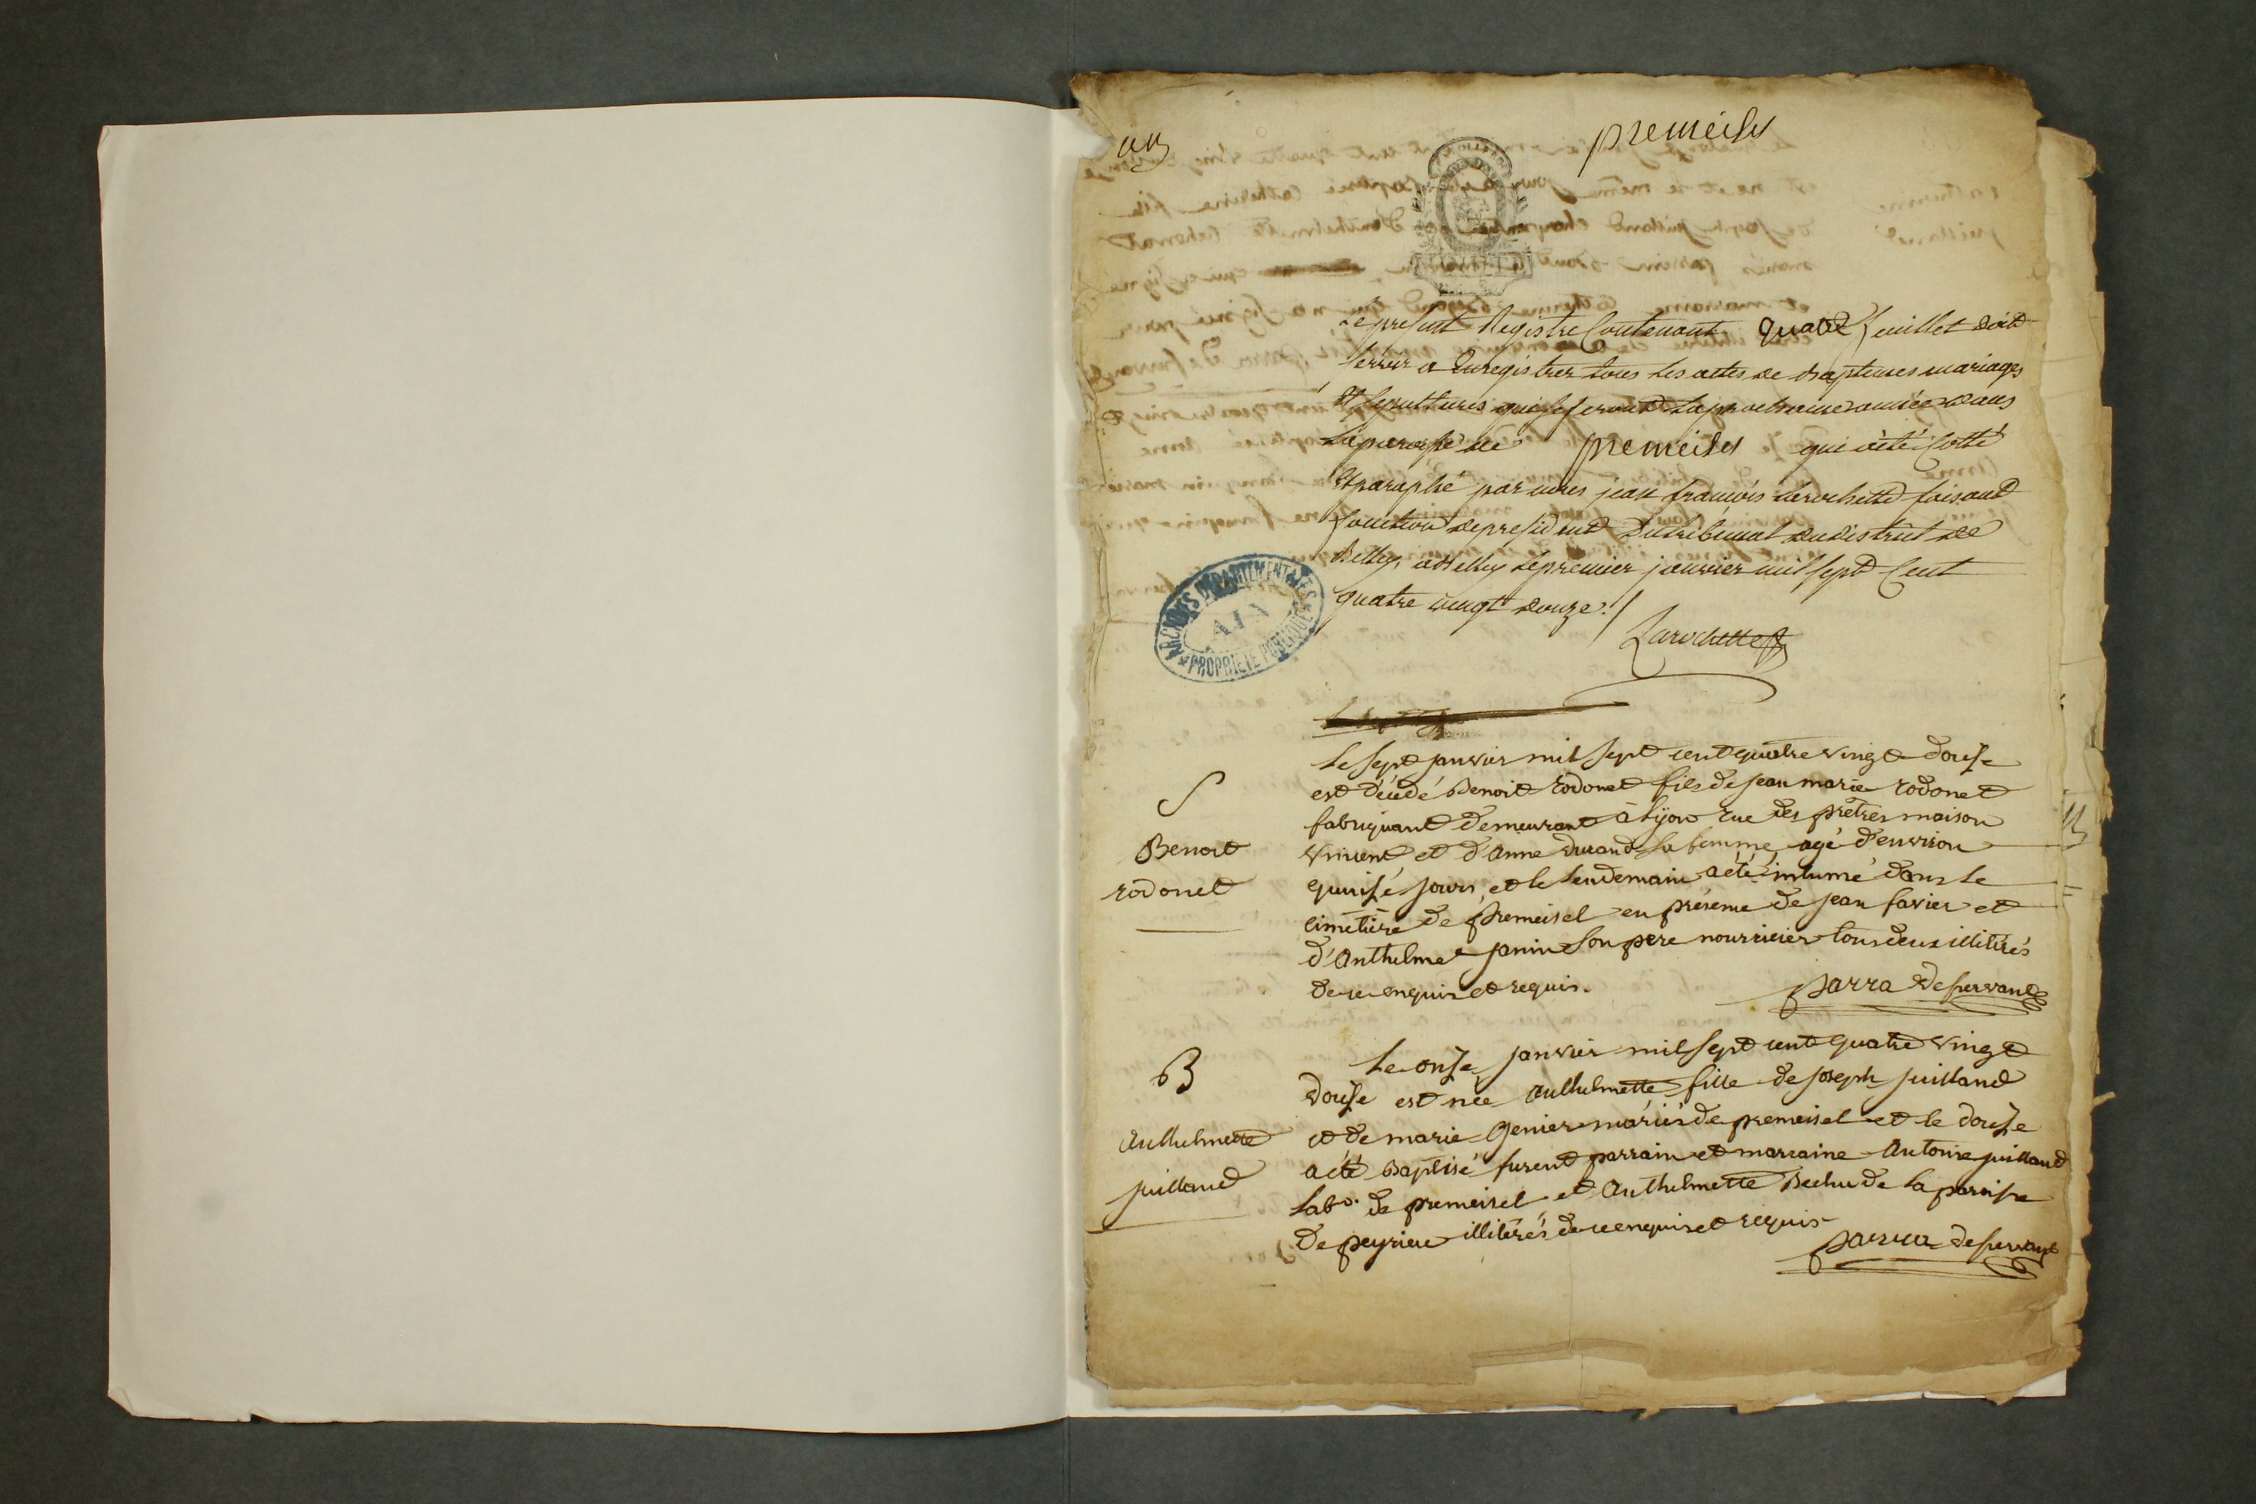 premeisel
Le present Registre Contenant quatre feuillet doit
servir a Enregistrer tous les actes de baptemes mariages
et sepultures qui se feront la prochaine année dans
la paroisse de premeisel qui a été Cotté
et paraphé par nous jean françois Larochette faisant
fonction de president du tribunal du district de
Belley, a Belley le premier janvier mil sept Cent
quatre vingt douze
Larochette
ARCHIVES DÉPARTEMENTALES
AIN
PROPRIÉTÉ PUBLIQUE
S
Benoit
rodonet
Le sept janvier mil sept cent quatre vingt douse
est décédé Benoit rodonet fils de jean marie rodonet
fabriquant demeurant à lyon rue des prêtres maison
vincent et d'anne durand sa femme agé d'environ
quinse jours, et le lendemain a été inhumé dans le
cimetière de premeisel en présence de jean favier et
d'anthelme janin son pere nourricier tous deux illitérés
de ce enquis et requis.
parra desservant
B
Anthelmette
juilland
Le onse janvier mil sept cent quatre vingt
douse est née anthelmette fille de joseph juilland
et de marie Genier mariés de premeisel et le douse
a été baptisé furent parrain et marraine Antoine juilland
labr. de premeisel et Anthelmette Bechu de la paroisse
de peyrieu illitérés de ce enquis et requis
parra desservant